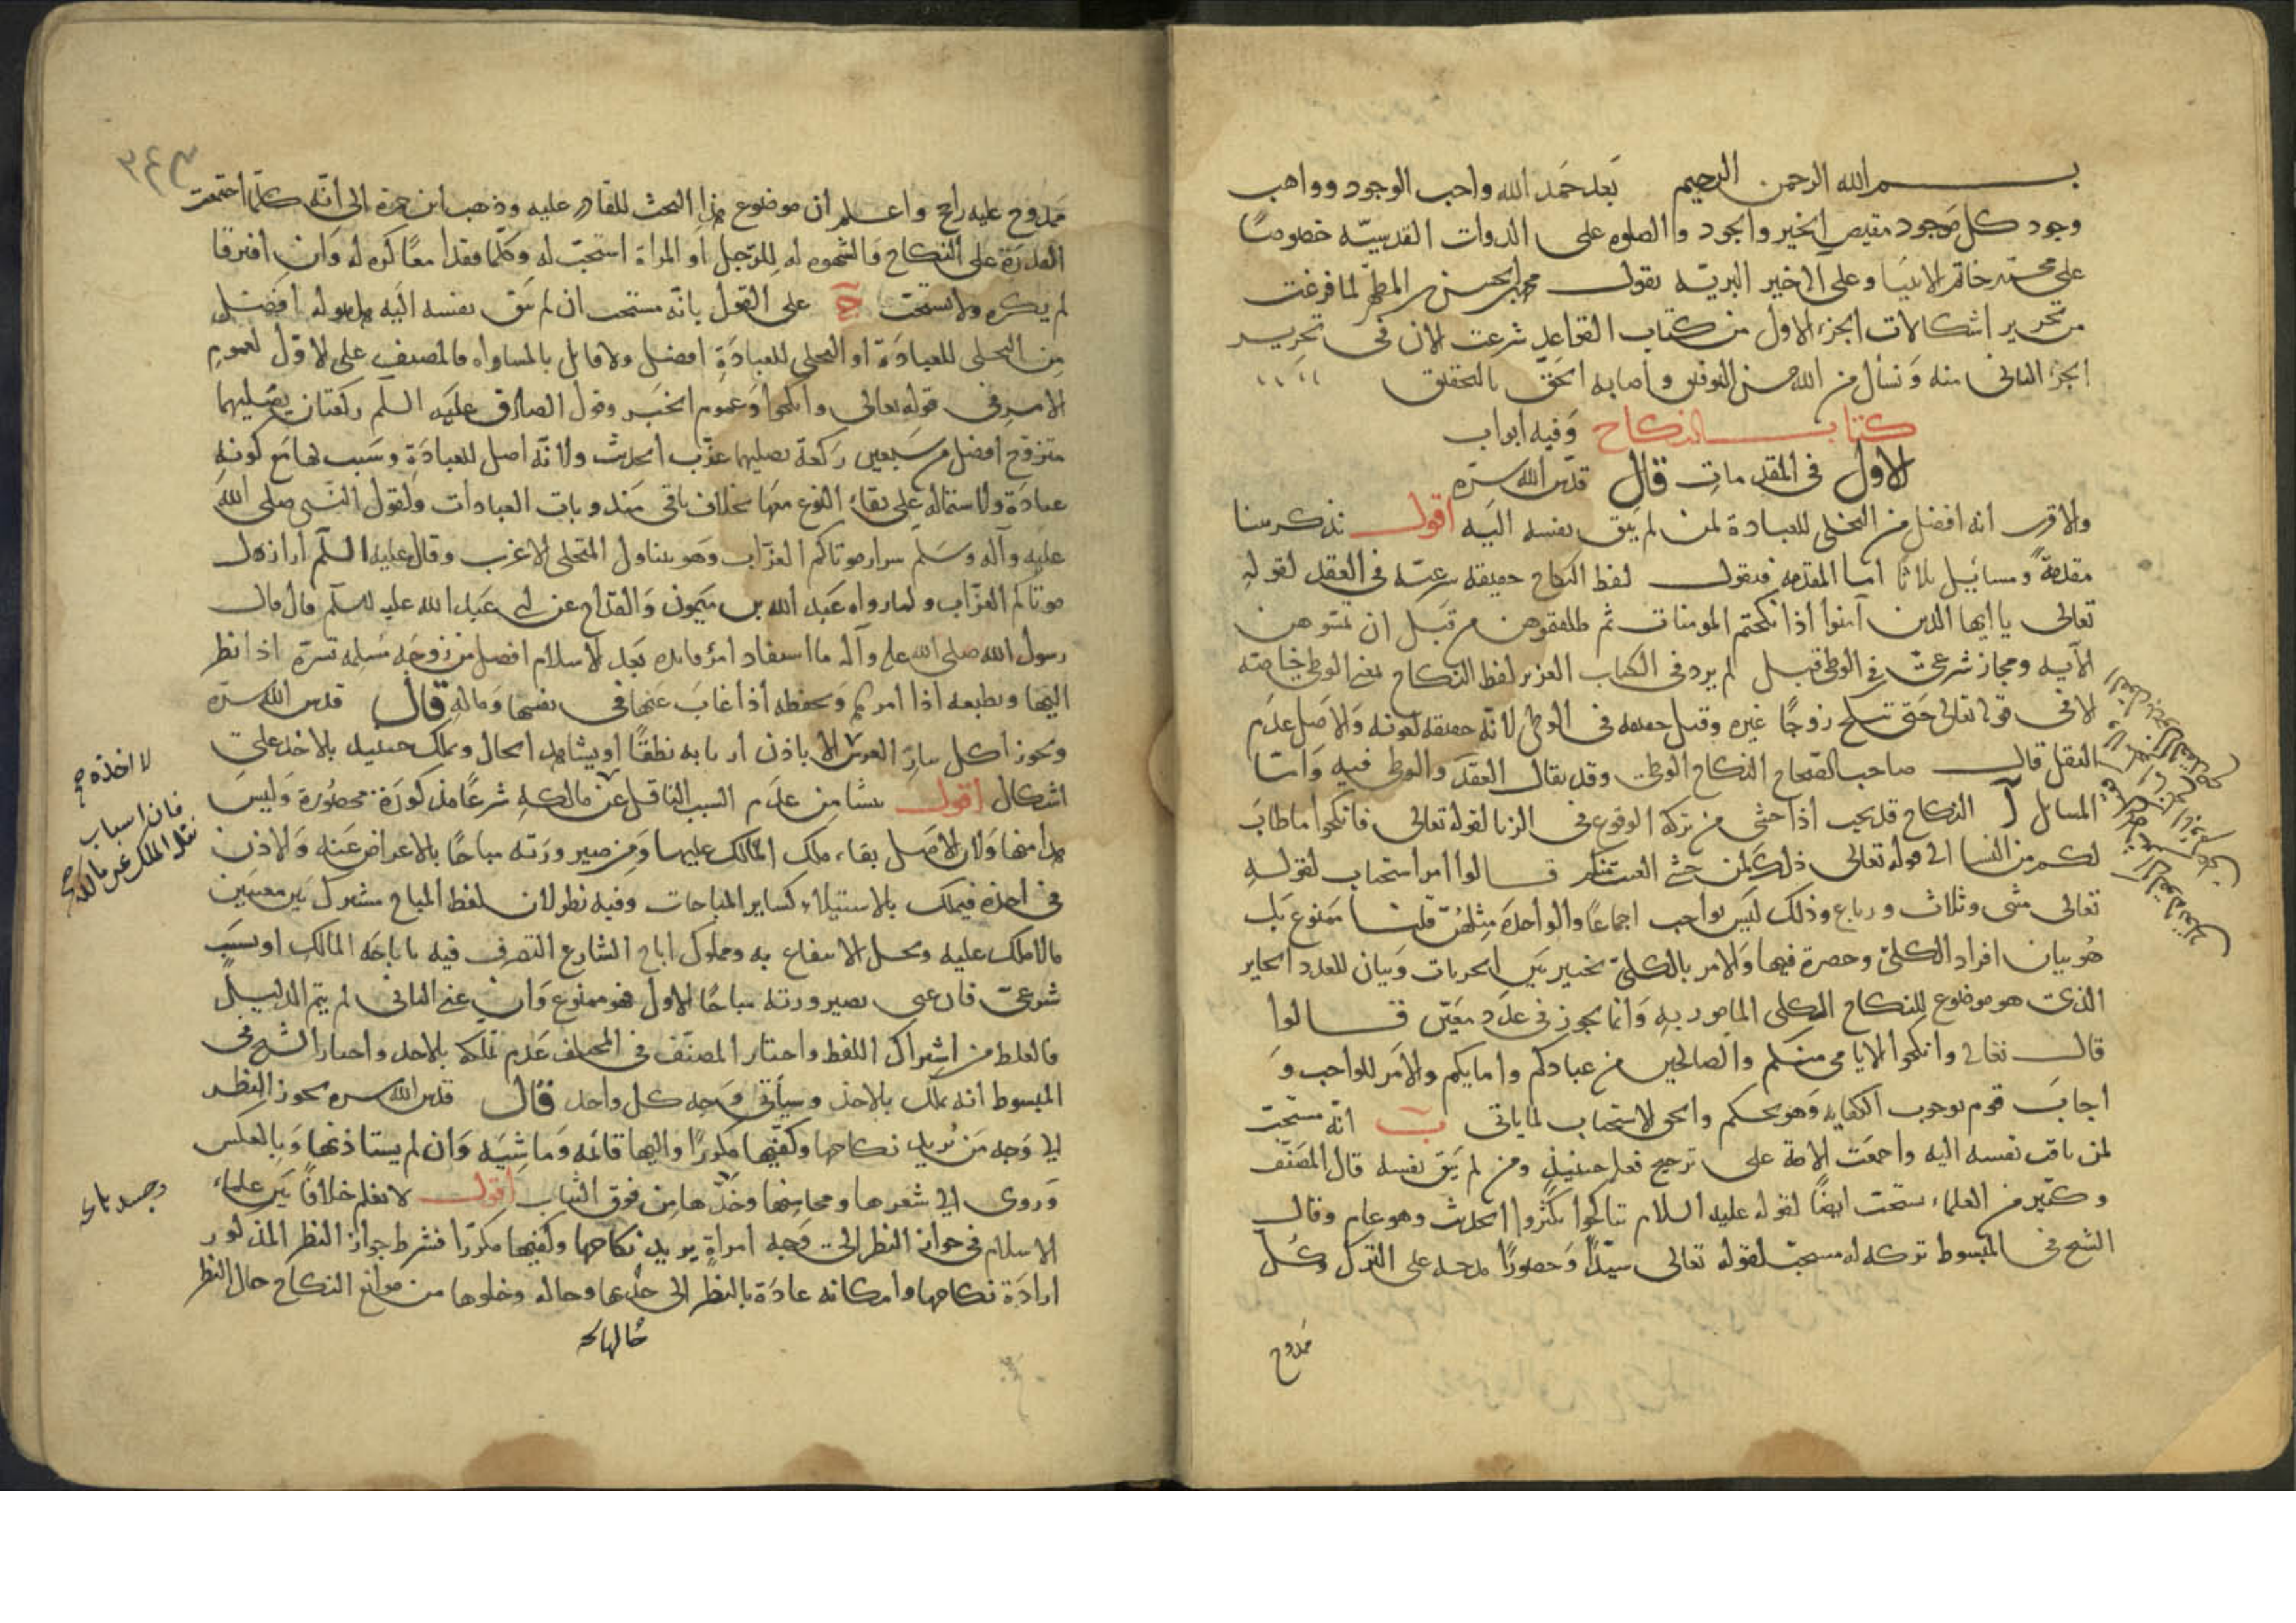 بسم الله الرحمن الرحيم بعد حمد الله واجب الوجود وواهب
وجود كل موجود مفيض الخير والجود والصلوه على الذوات القدسيّه خصوصًا
على محمد خاتم الانبيا وعلى آله خير البريّه يقول محمد بن الحسن بن المطهر لما فرغت
من تحرير اشكالات الجزء الاول من كتاب القواعد شرعت الان فى تحرير
الجزء الثانى منه ونسأل من الله حسن التوفيق واصابه الحق بالتحقيق
كتاب النكاح وفيه ابواب
الاول فى المقدمات قال قدس الله سرّه
والاقرب انه افضل من التخلى للعبادة لمن لم يتق نفسه اليه اقول نذكر هنا
مقدمةً ومسائيل ثلاثا اما المقدمه فنقول لفظ النكاح حقيقه شرعيّه فى العقد لقوله
تعالى يا ايها الذين آمنوا اذا نكحتم المومنات ثم طلقتموهن من قبل ان تمسّوهن
الآيه ومجاز شرعىّ فى الوطى قيل لم يرد فى الكتاب العزيز لفظ النكاح بمعنى الوطى خاصّه
الا فى قوله تعالى حتى تنكح زوجًا غيره وقيل حقيقه فى الوطى لانّه حقيقه لغويه والاصل عدم
النقل قال صاحب الصحاح النكاح الوطى وقد يقال العقد والوطى فيه وامّا
المسائل آ النكاح قد يجب اذا خشى من تركه الوقوع فى الزنا لقوله تعالى فانكحوا ما طاب
لكم من النسا الى قوله تعالى ذلك لمن خشى العنت منكم قالوا امر استحباب لقوله
تعالى مثنى وثلاث ورباع وذلك ليس بواجب اجماعًا والواحدة مثلهنّ قلنا ممنوع بل
هو بيان افراد الكلىّ وحصره فيها والامر بالكلىّ تخيير بين الجزيات وبيان للعدد الجايز
الذى هو موضوع للنكاح الكلى المامور به وانما يجوز فى عدد معيّن قالوا
قال تعالى وانكحوا الايامى منكم والصالحين من عبادكم وامايكم والامر للواجب و
اجاب قوم بوجوب الكفايه وهو تحكم والحق الاستحباب لما ياتى ب انّه مستحبّ
لمن تاقت نفسه اليه واجمعت الامة على ترجيح فعله حينيذٍ ومن لم يتق نفسه قال المصنّف
وكثير من العلماء يستحب ايضًا لقوله عليه السلام تناكحوا تكثروا الحديث وهو عام وقال
الشيخ فى المبسوط تركه له مستحبّ لقوله تعالى سيّدًا وحصورًا مدحه على الترك وكل
ممدوح
ممدوح عليه راجح واعلم ان موضوع هذا البحث للقادر عليه وذهب ابن حمزة الى انّه كلّما اجتمعت
القدرة على النكاح والشهوه له للرّجل او المراة استحبّ له وكلّما فقدا معًا كره له وان افترقا
لم يكره ولا يستحبّ ج على القول بانّه مستحب ان لم يتق نفسه اليه هل هو له افضل
من التخلى للعبادة او التخلى للعبادة افضل ولا قائل بالمساواه فالمصنف على الاول لعموم
الامر فى قوله تعالى وانكحوا وعموم الخبر وقول الصادق عليه السلم ركعتان يصليهما
متزوج افضل من سبعين ركعة يصليها عزب الحديث ولانّه اصل للعبادة وسبب لها مع كونه
عبادة ولاشتماله على بقاء النوع معها بخلاف باقى مندوبات العبادات ولقول النبى صلى الله
عليه وآله وسلم شرار موتاكم العزّاب وهو يتناول المتخلى الاعزب وقال عليه السلم اراذل
موتاكم العزّاب ولما رواه عبد الله بن ميمون القدّاح عن ابى عبد الله عليه السلم قال قال
رسول الله صلى الله عليه وآله ما استفاد امرؤ فائده بعد الاسلام افضل من زوجه مسلمه تسرّه اذا نظر
اليها وتطيعه اذا امرها وتحفظه اذا غاب عنها فى نفسها وماله قال قدس الله سرّه
ويجوز اكل نثار العرس لا اخذه الا باذن اربابه نطقًا او بشاهد الحال ويملك حينيذ بالاخذ على
اشكال اقول ينشا من عدم السبب الناقل عن مالكه شرعًا مذكورة محصورة وليس
هذا منها ولان الاصل بقاء ملك المالك عليها ومن صيرورته مباحًا بالاعراض عنه والاذن
فى اخذه فيملك بالاستيلاء كساير المباحات وفيه نظر لان لفظ المباح مشترك بين معنيين
مالا ملك عليه ويحل الانتفاع به ومملوك اباح الشارع التصرف فيه باباحة المالك او بسبب
شرعىّ فان عنى بصيرورته مباحًا الاول فهو ممنوع وان عنى الثانى لم يتم الدليل
فالغلط من اشتراك اللفظ واختار المصنّف فى المختلف عدم تملّكه بالاخذ واختار الشيخ فى
المبسوط انه يملك بالاخذ وسيأتى وجه كل واحد قال قدس الله سره يجوز النظر
الى وجه من يريد نكاحها وكفّيها مكررًا واليها قائمه وماشيه وان لم يستاذنها وبالعكس
وروى الى شعرها ومحاسنها وجسدها من فوق الثياب اقول لا نعلم خلافًا بين علماء
الاسلام فى جواز النظر الى وجه امراةٍ يريد نكاحها وكفّيها مكرّرا فشرط جواز النظر المذكور
ارادة نكاحها وامكانه عادة بالنظر الى حالها وحاله وخلوها من موانع النكاح حال النظر
لا اخذه صح
فان اسباب
نقل الملك عن مالكه صح